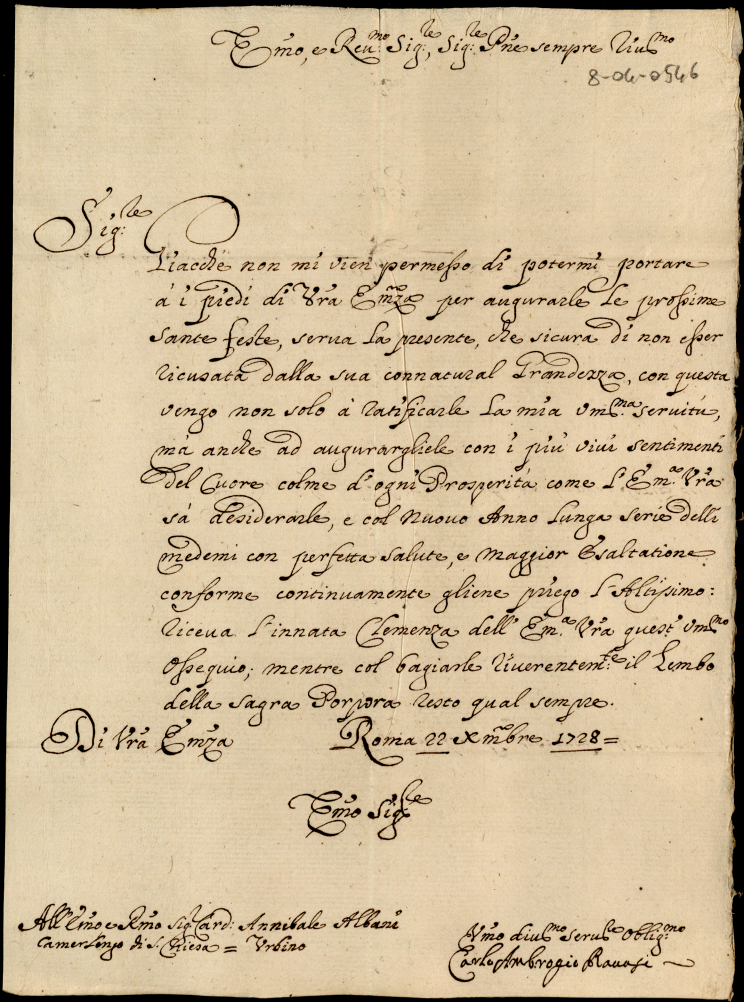 Emo, e Reumo Sig:re, Sig:re Pne sempre Riumo
8-04-0546
Sig:re
Giacche non mi vien permesso di potermi portare
à i piedi di Vrã Emza per augurarle le prossime
sante feste, serva la presente, che sicura di non esser
ricusata dalla sua connatural Grandezza, con questa
vengo non solo à ratificarle la mia um:ma servitù,
mà anche ad augurargliele con i più vivi sentimenti
del Cuore colme d'ogni Prosperità come l'Em:a Vrã
sà desiderarle, e col Nuovo Anno lunga serie delli
medemi con perfetta salute, e maggior Esaltatione
conforme continuamente gliene priego l'Altissimo:
riceva l'innata Clemenza dell' Em:a Vrã quest' ummo
Ossequio; mentre col bagiarle riverentem:te il Lembo
della sagra Porpora resto qual sempre.
Di Vrã Emza Roma 22 Xmbre 1728=
Emo Sig:re
All'Emo e Rmo Sig Card: Annibale Albani
Camerlengo di S. Chiesa = Urbino
Umo diumo serure Oblig:mo
Carlo Ambrogio Ravasi